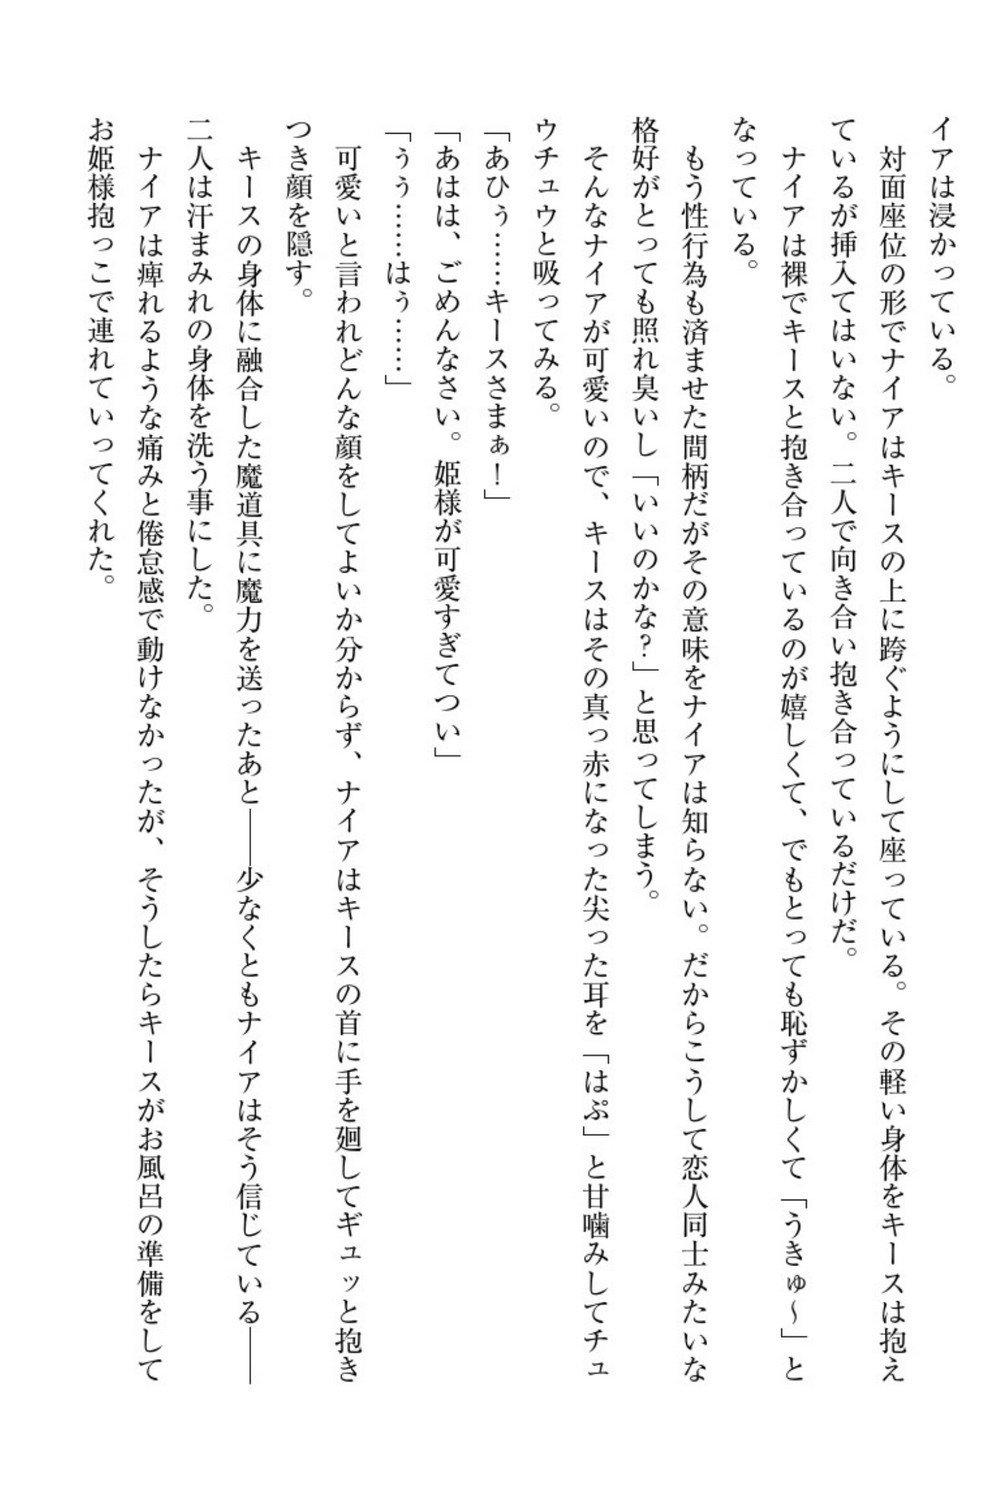 イアは浸かっている。
　対面座位の形でナイアはキースの上に跨ぐようにして座っている。その軽い身体をキースは抱え
ているが挿入てはいない。二人で向き合い抱き合っているだけだ。
　ナイアは裸でキースと抱き合っているのが嬉しくて、でもとっても恥ずかしくて「うきゅ～」と
なっている。
　もう性行為も済ませた間柄だがその意味をナイアは知らない。だからこうして恋人同士みたいな
格好がとっても照れ臭いし「いいのかな？」と思ってしまう。
　そんなナイアが可愛いので、キースはその真っ赤になった尖った耳を「はぷ」と甘噛みしてチュ
ウチュウと吸ってみる。
「あひぅ……キースさまぁ！」
「あはは、ごめんなさい。姫様が可愛すぎてつい」
「ぅぅ……はぅ……」
　可愛いと言われどんな顔をしてよいか分からず、ナイアはキースの首に手を廻してギュッと抱き
つき顔を隠す。
　キースの身体に融合した魔道具に魔力を送ったあと――少なくともナイアはそう信じている――
二人は汗まみれの身体を洗う事にした。
　ナイアは痺れるような痛みと倦怠感で動けなかったが、そうしたらキースがお風呂の準備をして
お姫様抱っこで連れていってくれた。